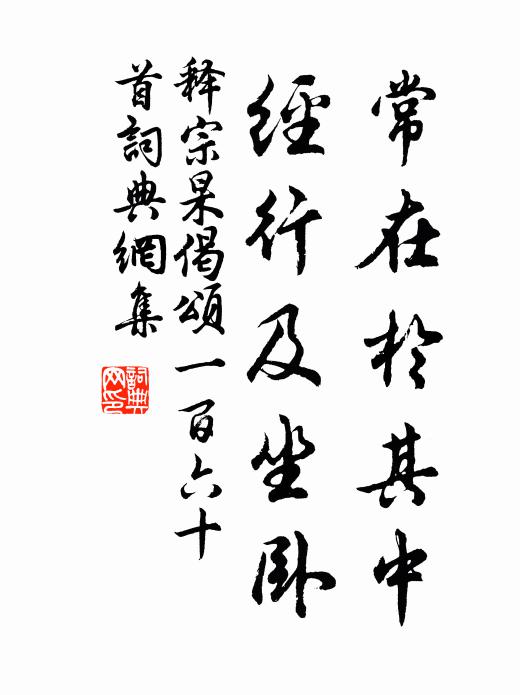 常在於其中
經行及坐臥
释宗杲偈頌一百六十
首詞典網集
詞典
网印